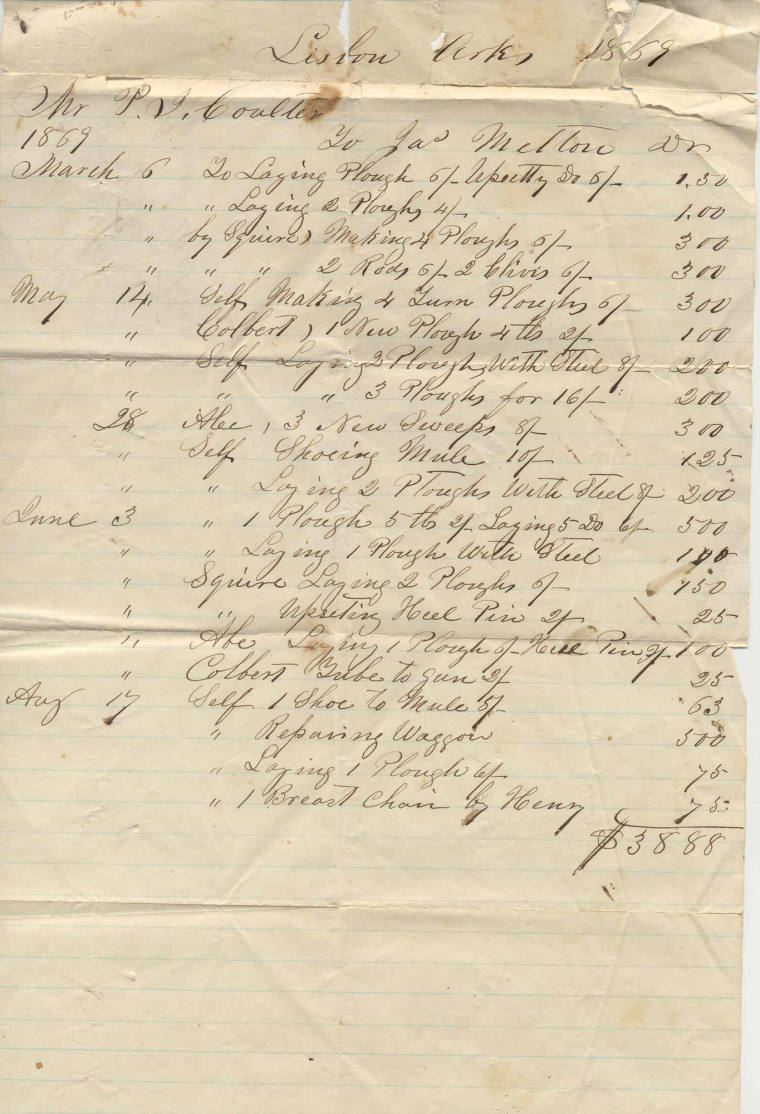 Lisbon Arks 1869
Mr P. I. Coulter
1869 To Jas Melton Dr
March 6 To Laying Plough 6/- Upsetty Do 6/- 1.50
" " Laying 2 Ploughs 4/- 1.00
" by Squire, Making 4 Ploughs 6/- 300
" " " 2 Rods 6/- 2 Clivis 6/- 300
May 14 Self Making 4 Turn Ploughs 6/- 300
" Colbert, 1 New Plough 4 lbs 2/- 100
" Self Laying 2 Ploughs With Steel 8/- 200
" " " 3 Ploughs for 16/- 200
28 Abe, 3 New Sweeps 8/- 300
" Self Shoeing Mule 10/- 1.25
" " Laying 2 Ploughs With Steel 8/- 200
June 3 " 1 Plough 5 lbs 2/- Laying 5 Do 6/- 500
" " Laying 1 Plough With Steel 100
" Squire Laying 2 Ploughs 6/- 150
" " Upseting Heel Pin 2/- 25
" Abe Laying 1 Plough 6/- Heel Pin 2/- 100
" Colbert Tube to gun 2/- 25
Aug 17 Self 1 Shoe to Mule 5/- 63
" Repairing Waggon 500
" Laying 1 Plough 6/- 75
" 1 Breast Chain by Henry 75
$38 88